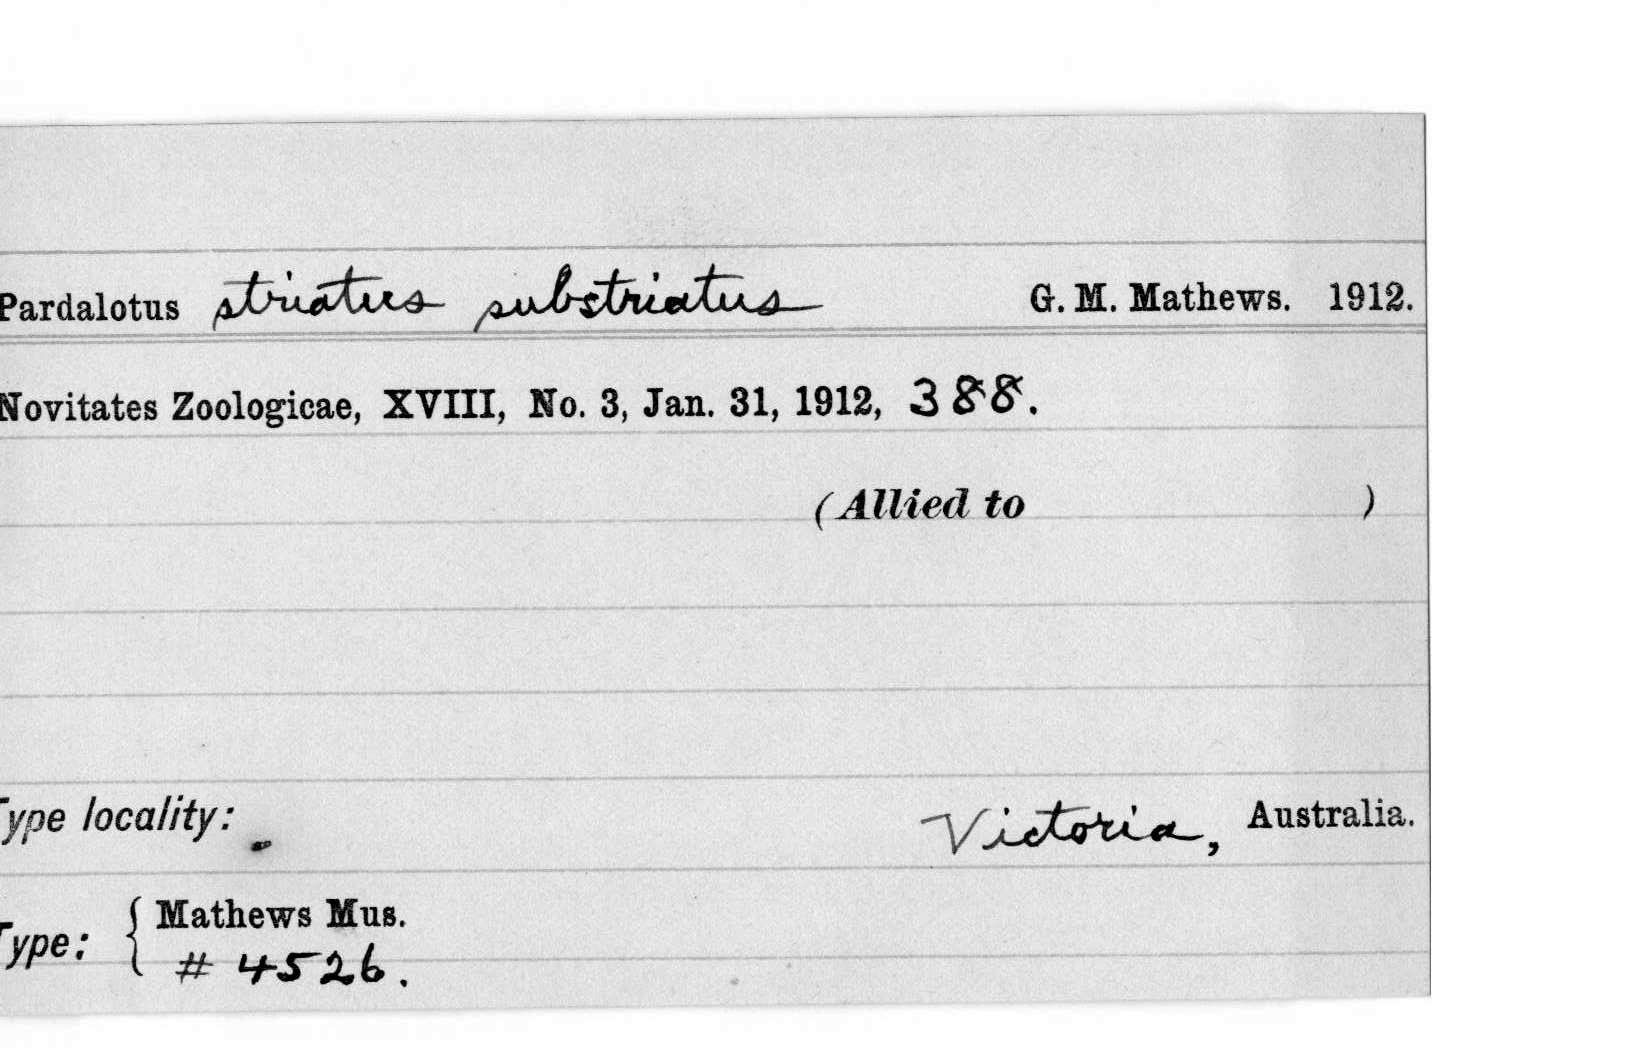 Pardalotus striatus substriatus G. M. Mathews. 1912.
Novitates Zoologicae, XVIII, No. 3, Jan. 31, 1912, 388.
(Allied to )
Type locality: Victoria, Australia.
Type: { Mathews Mus.
# 4526.